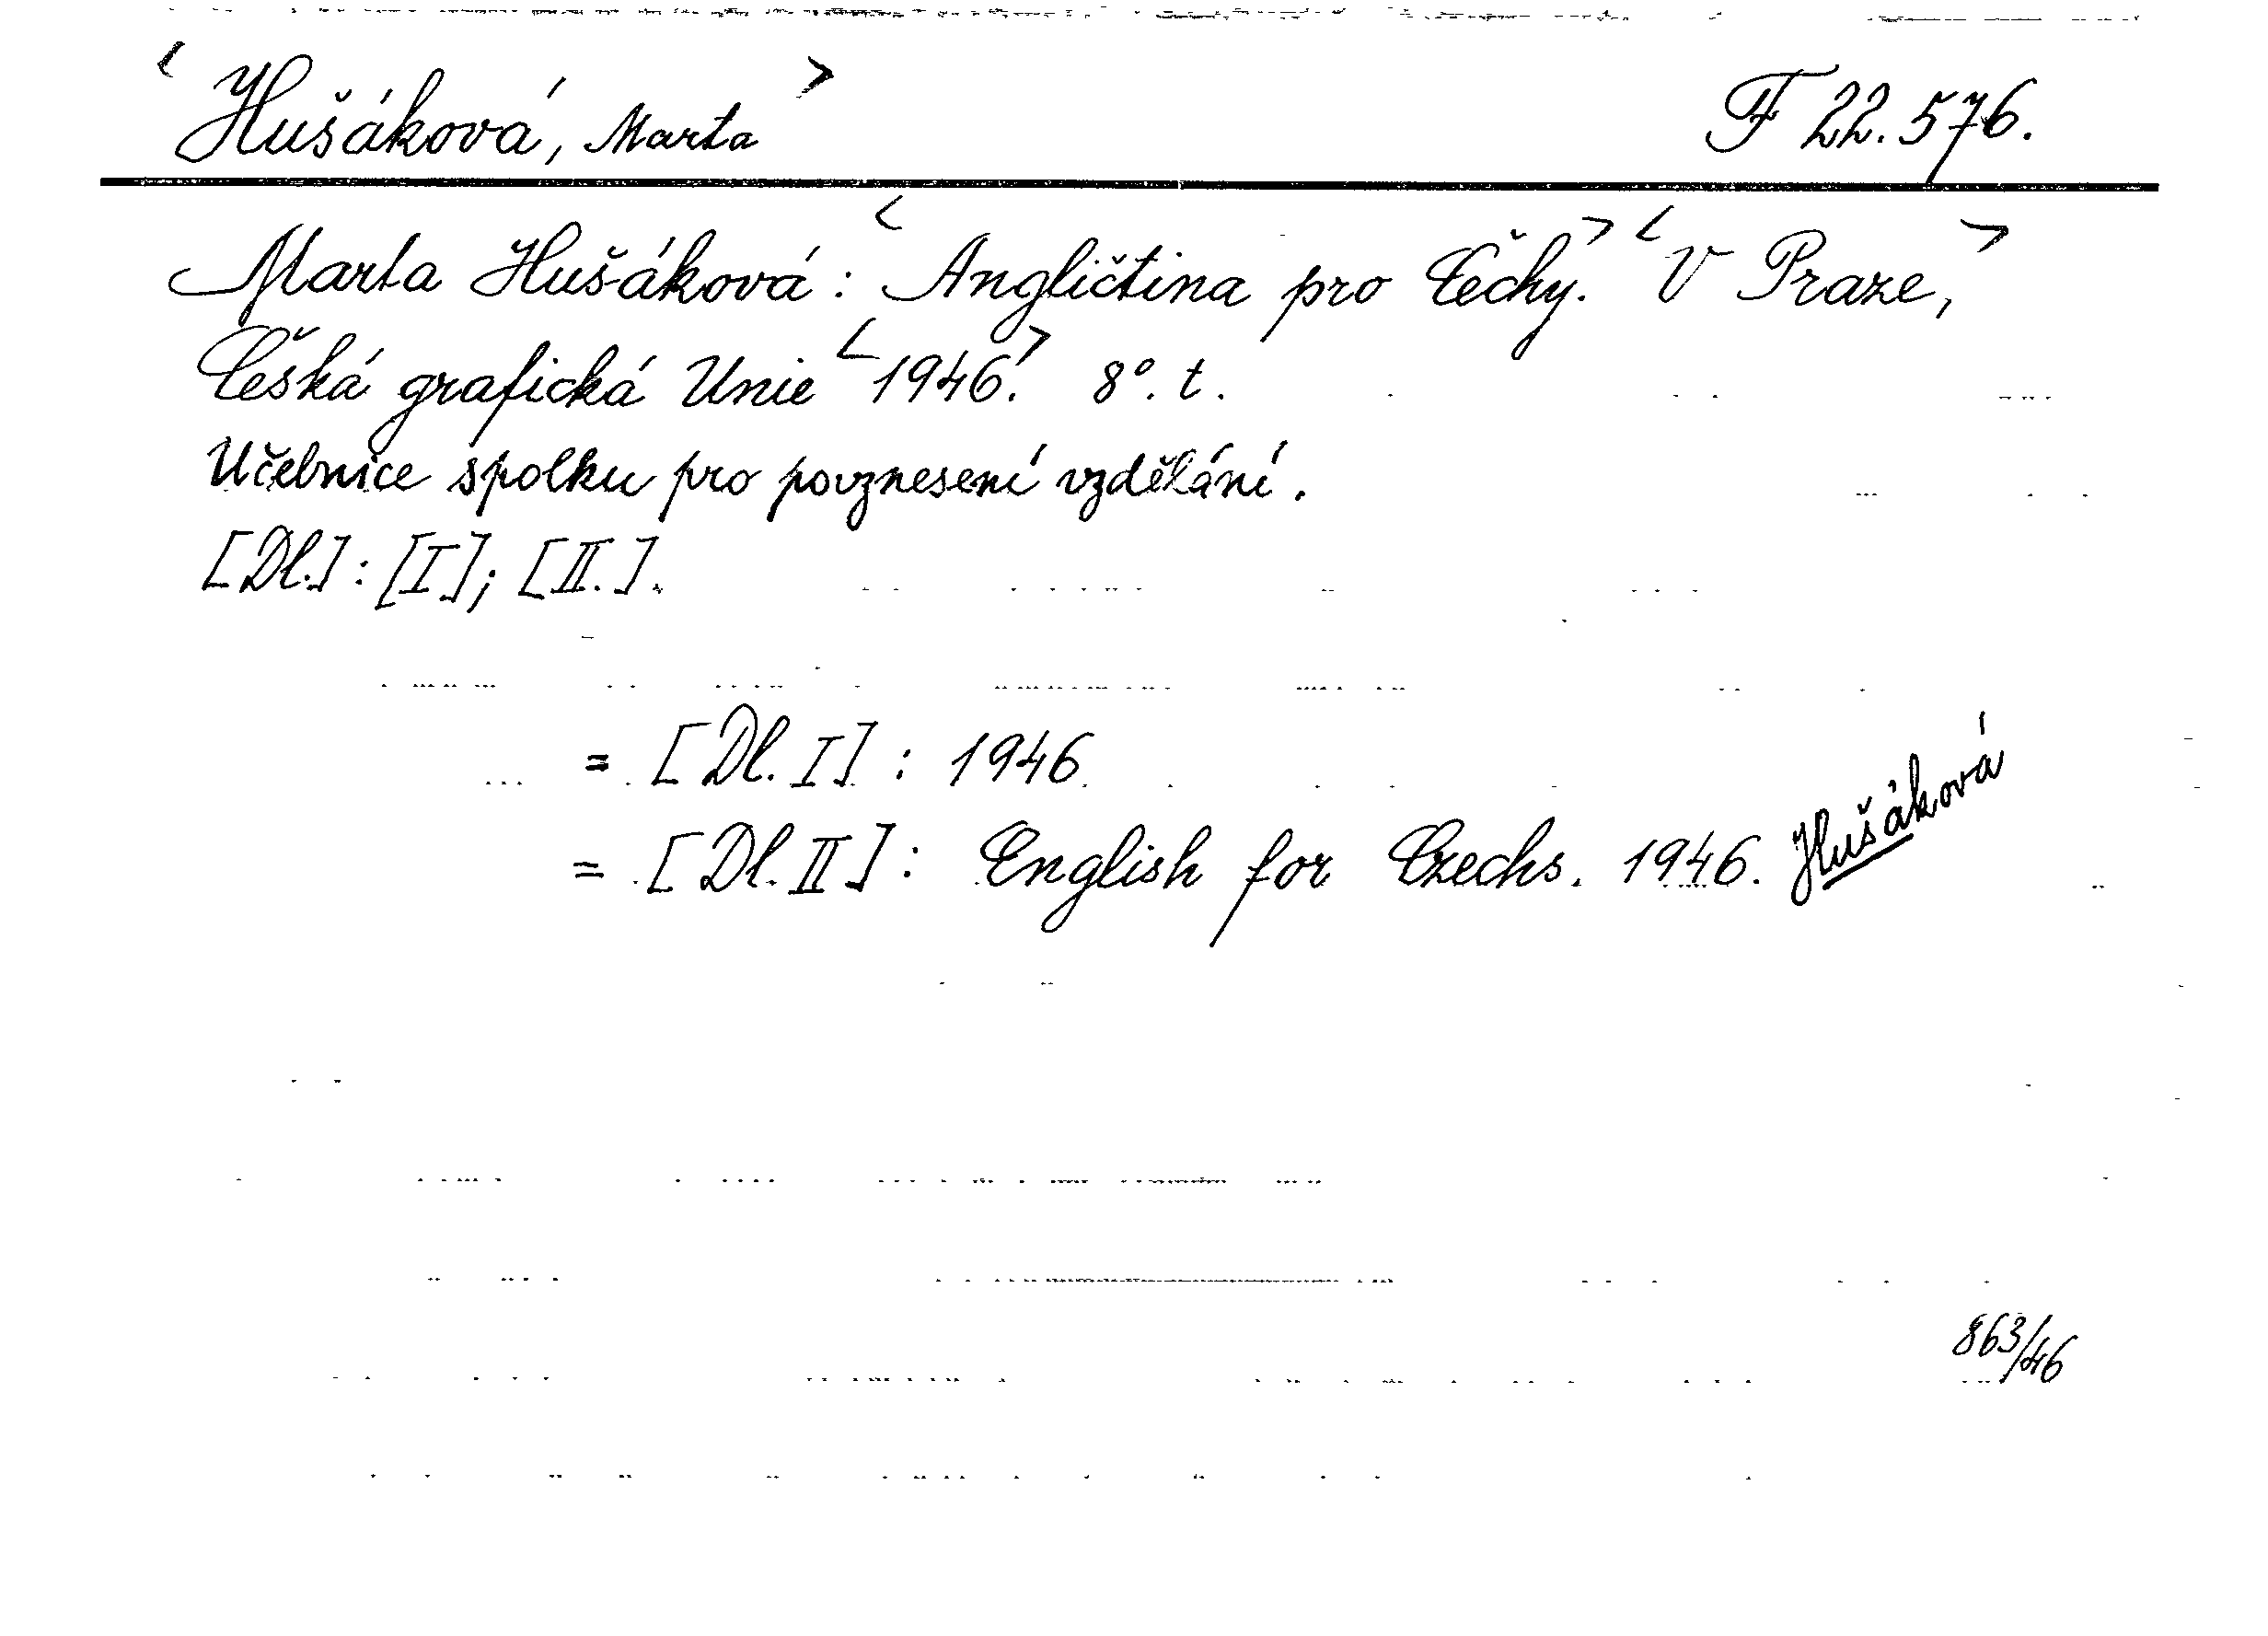 < Hušáková, Marta > F 22.576.
Marta Hušáková: < Angličtina pro Čechy. > < V Praze, >
Česká grafická Unie < 1946. > 8°. t.
Učebnice spolku pro povznesení vzdělání.
[Dl.]: [I]; [II.].
= [Dl. I] : 1946
= [Dl. II] : English for Czechs. 1946. Hušáková
863/46